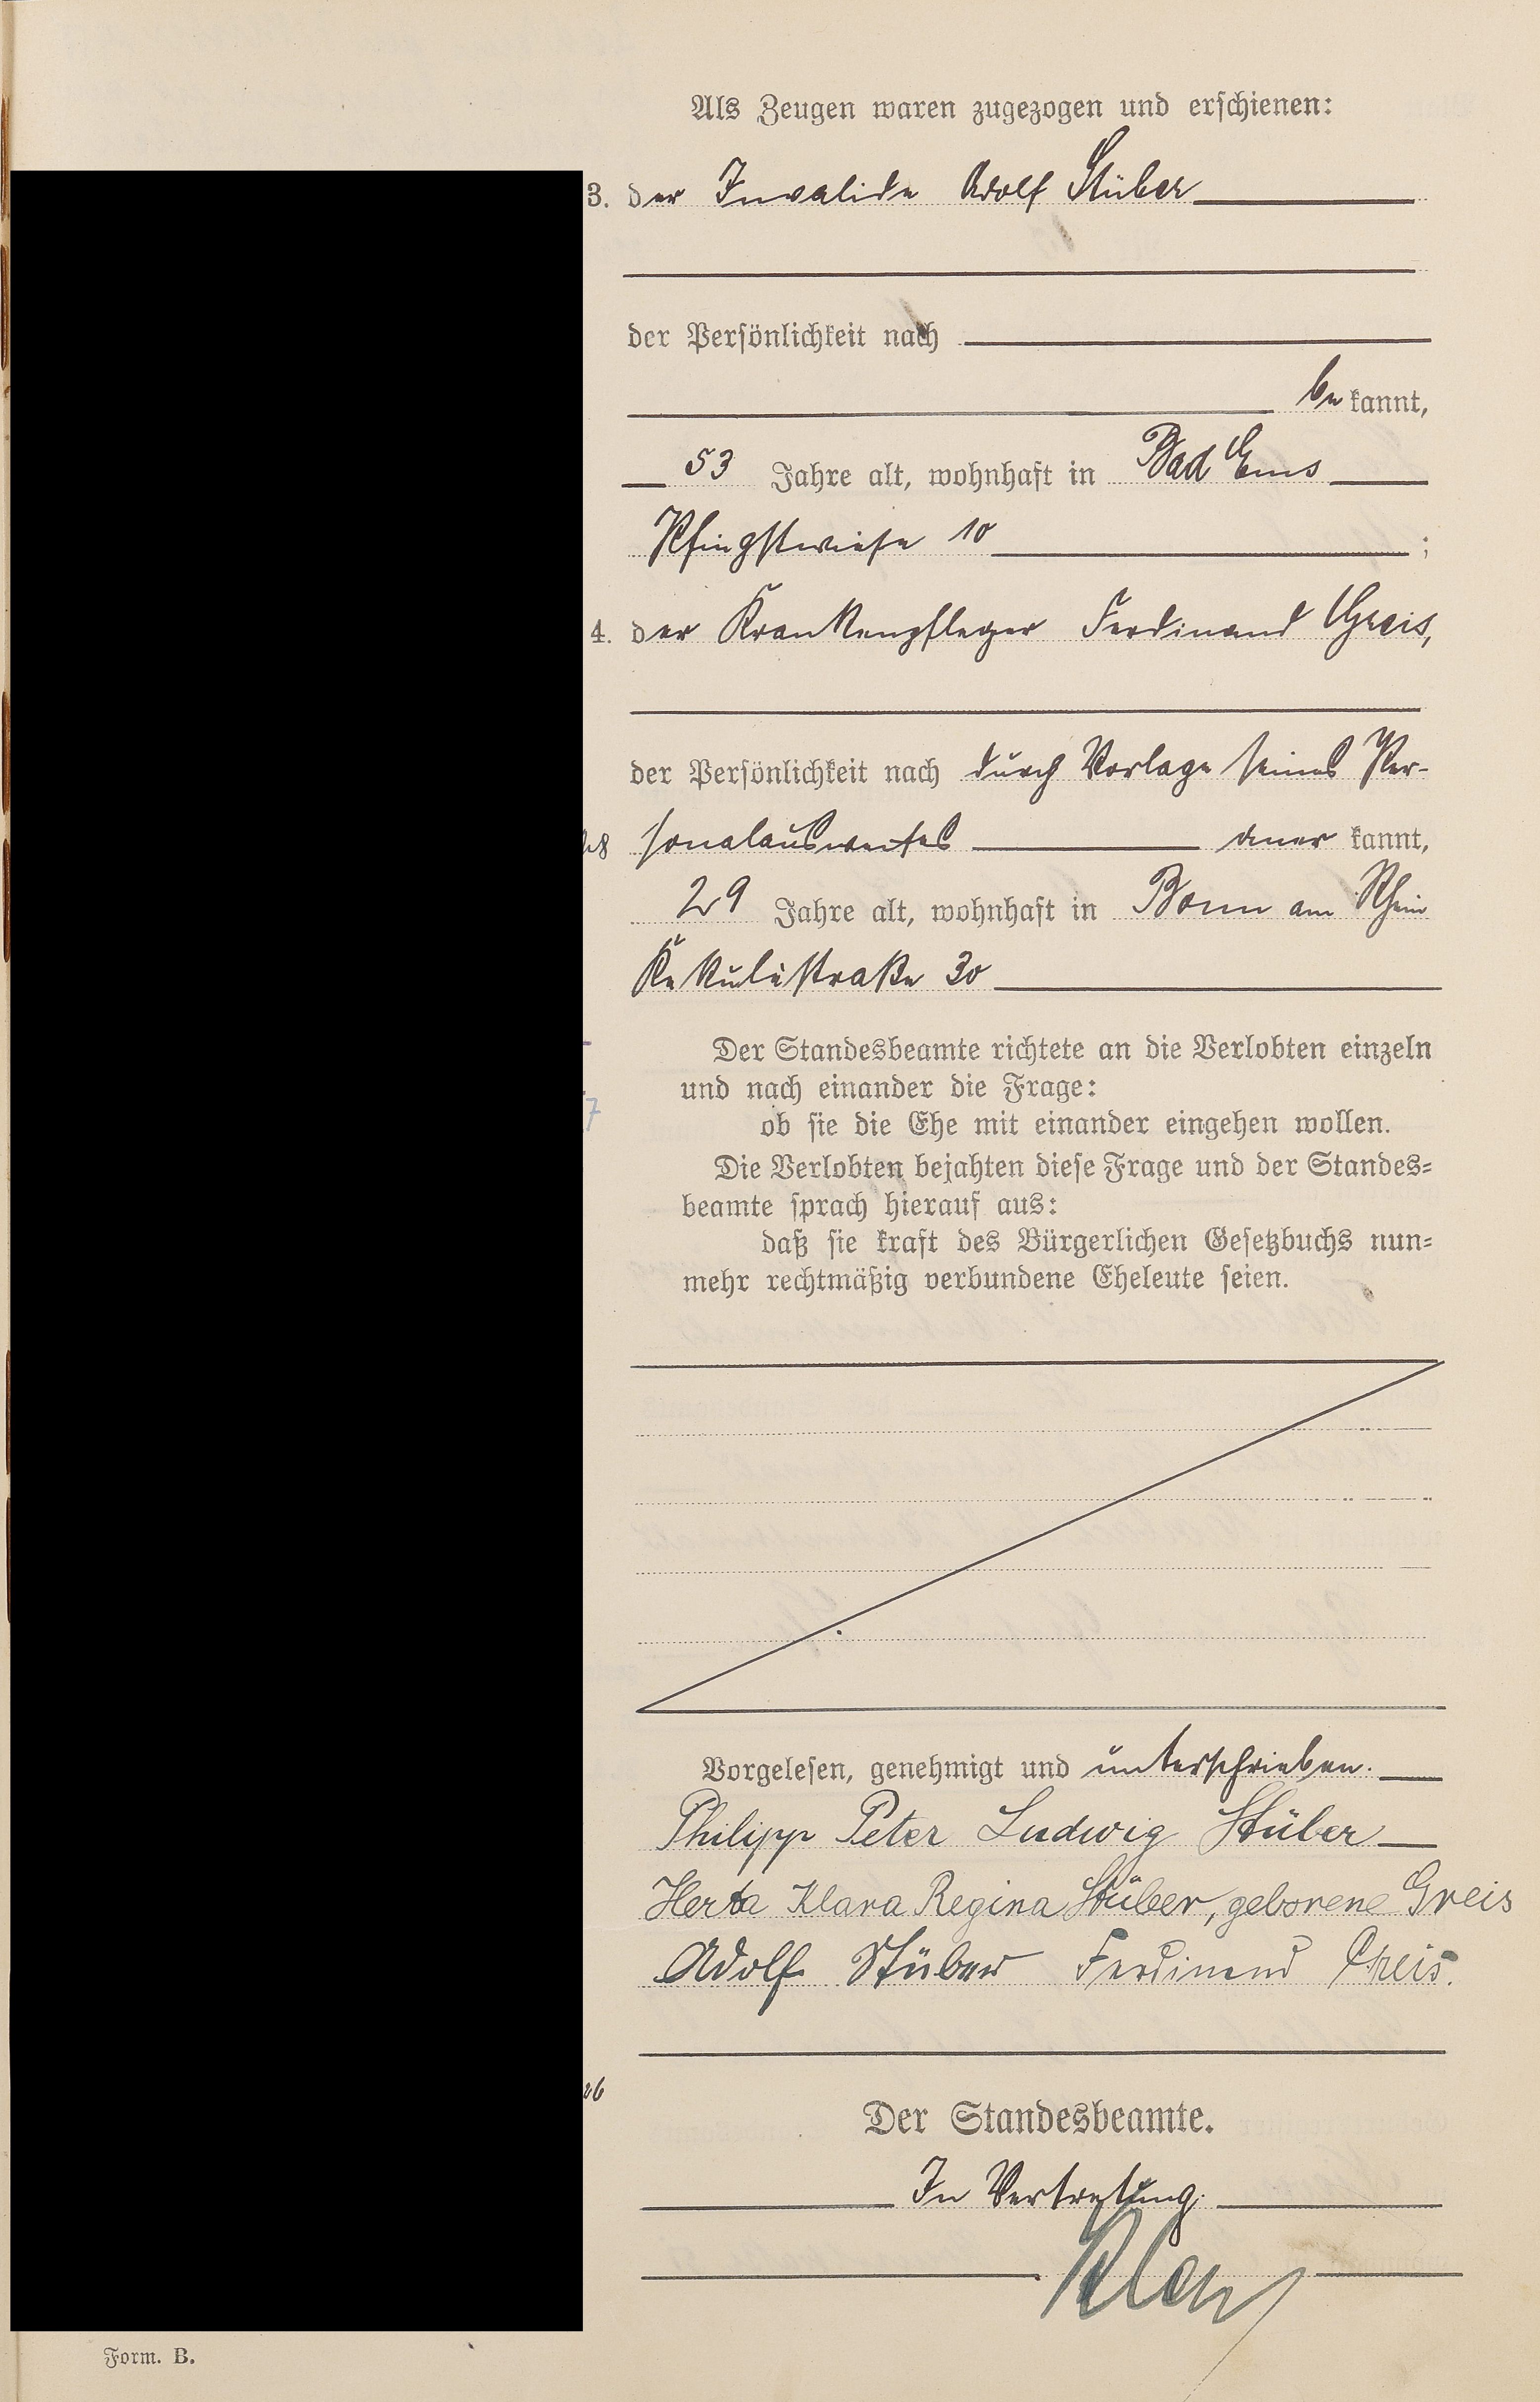 Als Zeugen waren zugezogen und erschienen:
3. der Invalide Adolf Stüber
der Persönlichkeit nach
bekannt,
53 Jahre alt, wohnhaft in Bad Ems
Pfingstwiese 10 ;
4. der Krankenpfleger Ferdinand Greis,
der Persönlichkeit nach durch Vorlage seines Per-
sonalausweises anerkannt,
29 Jahre alt, wohnhaft in Bonn am Rhein
Kekuléstraße 30
Der Standesbeamte richtete an die Verlobten einzeln
und nach einander die Frage:
ob sie die Ehe mit einander eingehen wollen.
Die Verlobten bejahten diese Frage und der Standes-
beamte sprach hierauf aus:
daß sie kraft des Bürgerlichen Gesetzbuchs nun-
mehr rechtmäßig verbundene Eheleute seien.
Vorgelesen, genehmigt und unterschrieben.
Philipp Peter Ludwig Stüber
Herta Klara Regina Stüber, geborene Greis
Adolf Stüber Ferdinand Greis.
Der Standesbeamte.
In Vertretung.
Form. B.